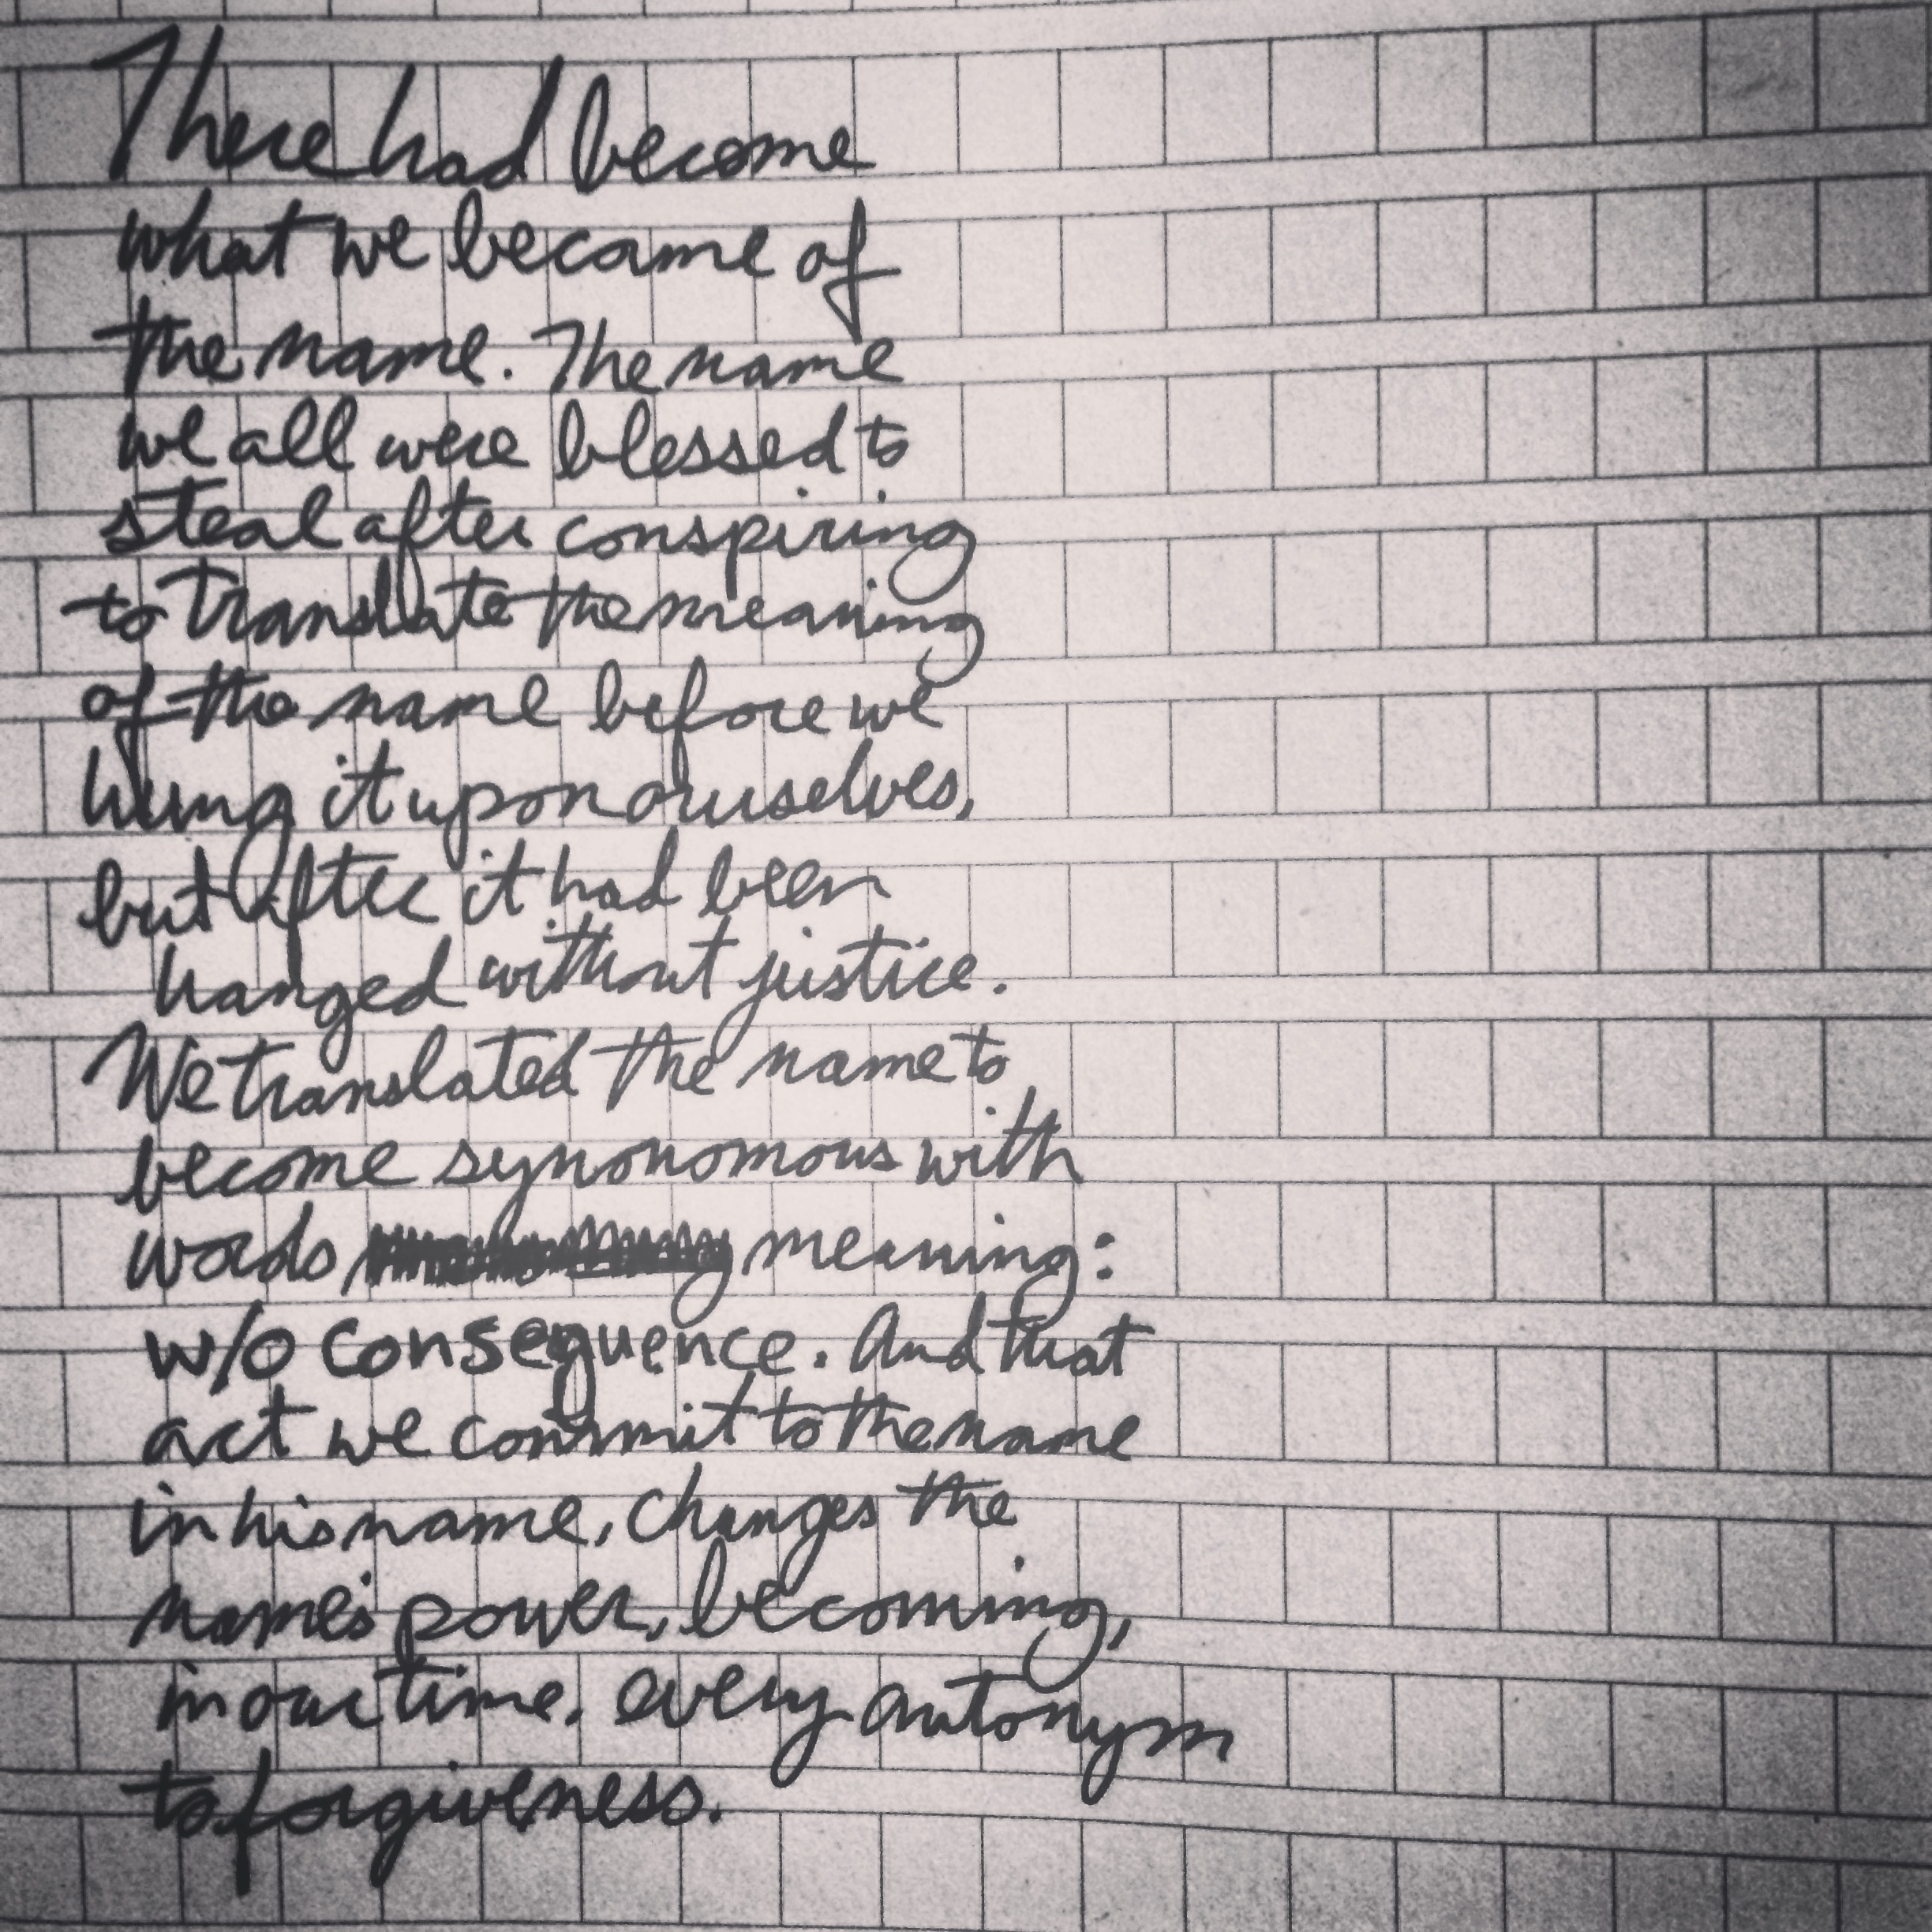 There had become
what we became of
the name. The name
we all were blessed to
steal after conspiring
to translate the meaning
of the name before we
hung it upon ourselves,
but after it had been
hanged without justice.
We translated the name to
become synonomous with
words meaning:
w/o consequence. And that
act we commit to the name
in his name, changes the
name's power, becoming,
in our time, every antonym
to forgiveness.